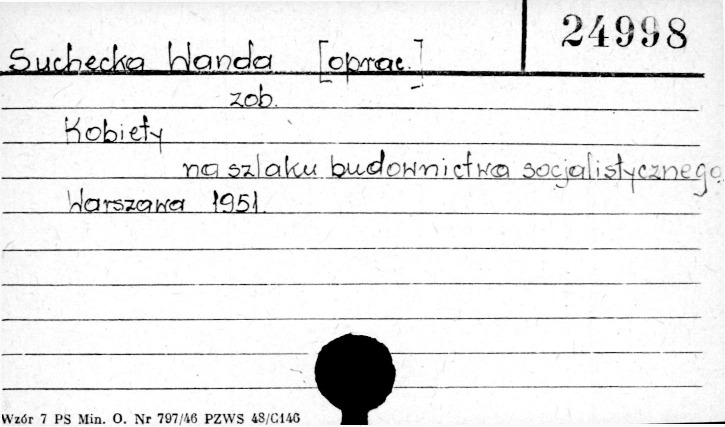 24998
Suchecka Wanda [oprac.]
zob.
Kobiety
na szlaku budownictwa socjalistycznego.
Warszawa 1951.
Wzór 7 PS Min. O. Nr 797/46 PZWS 48/C146